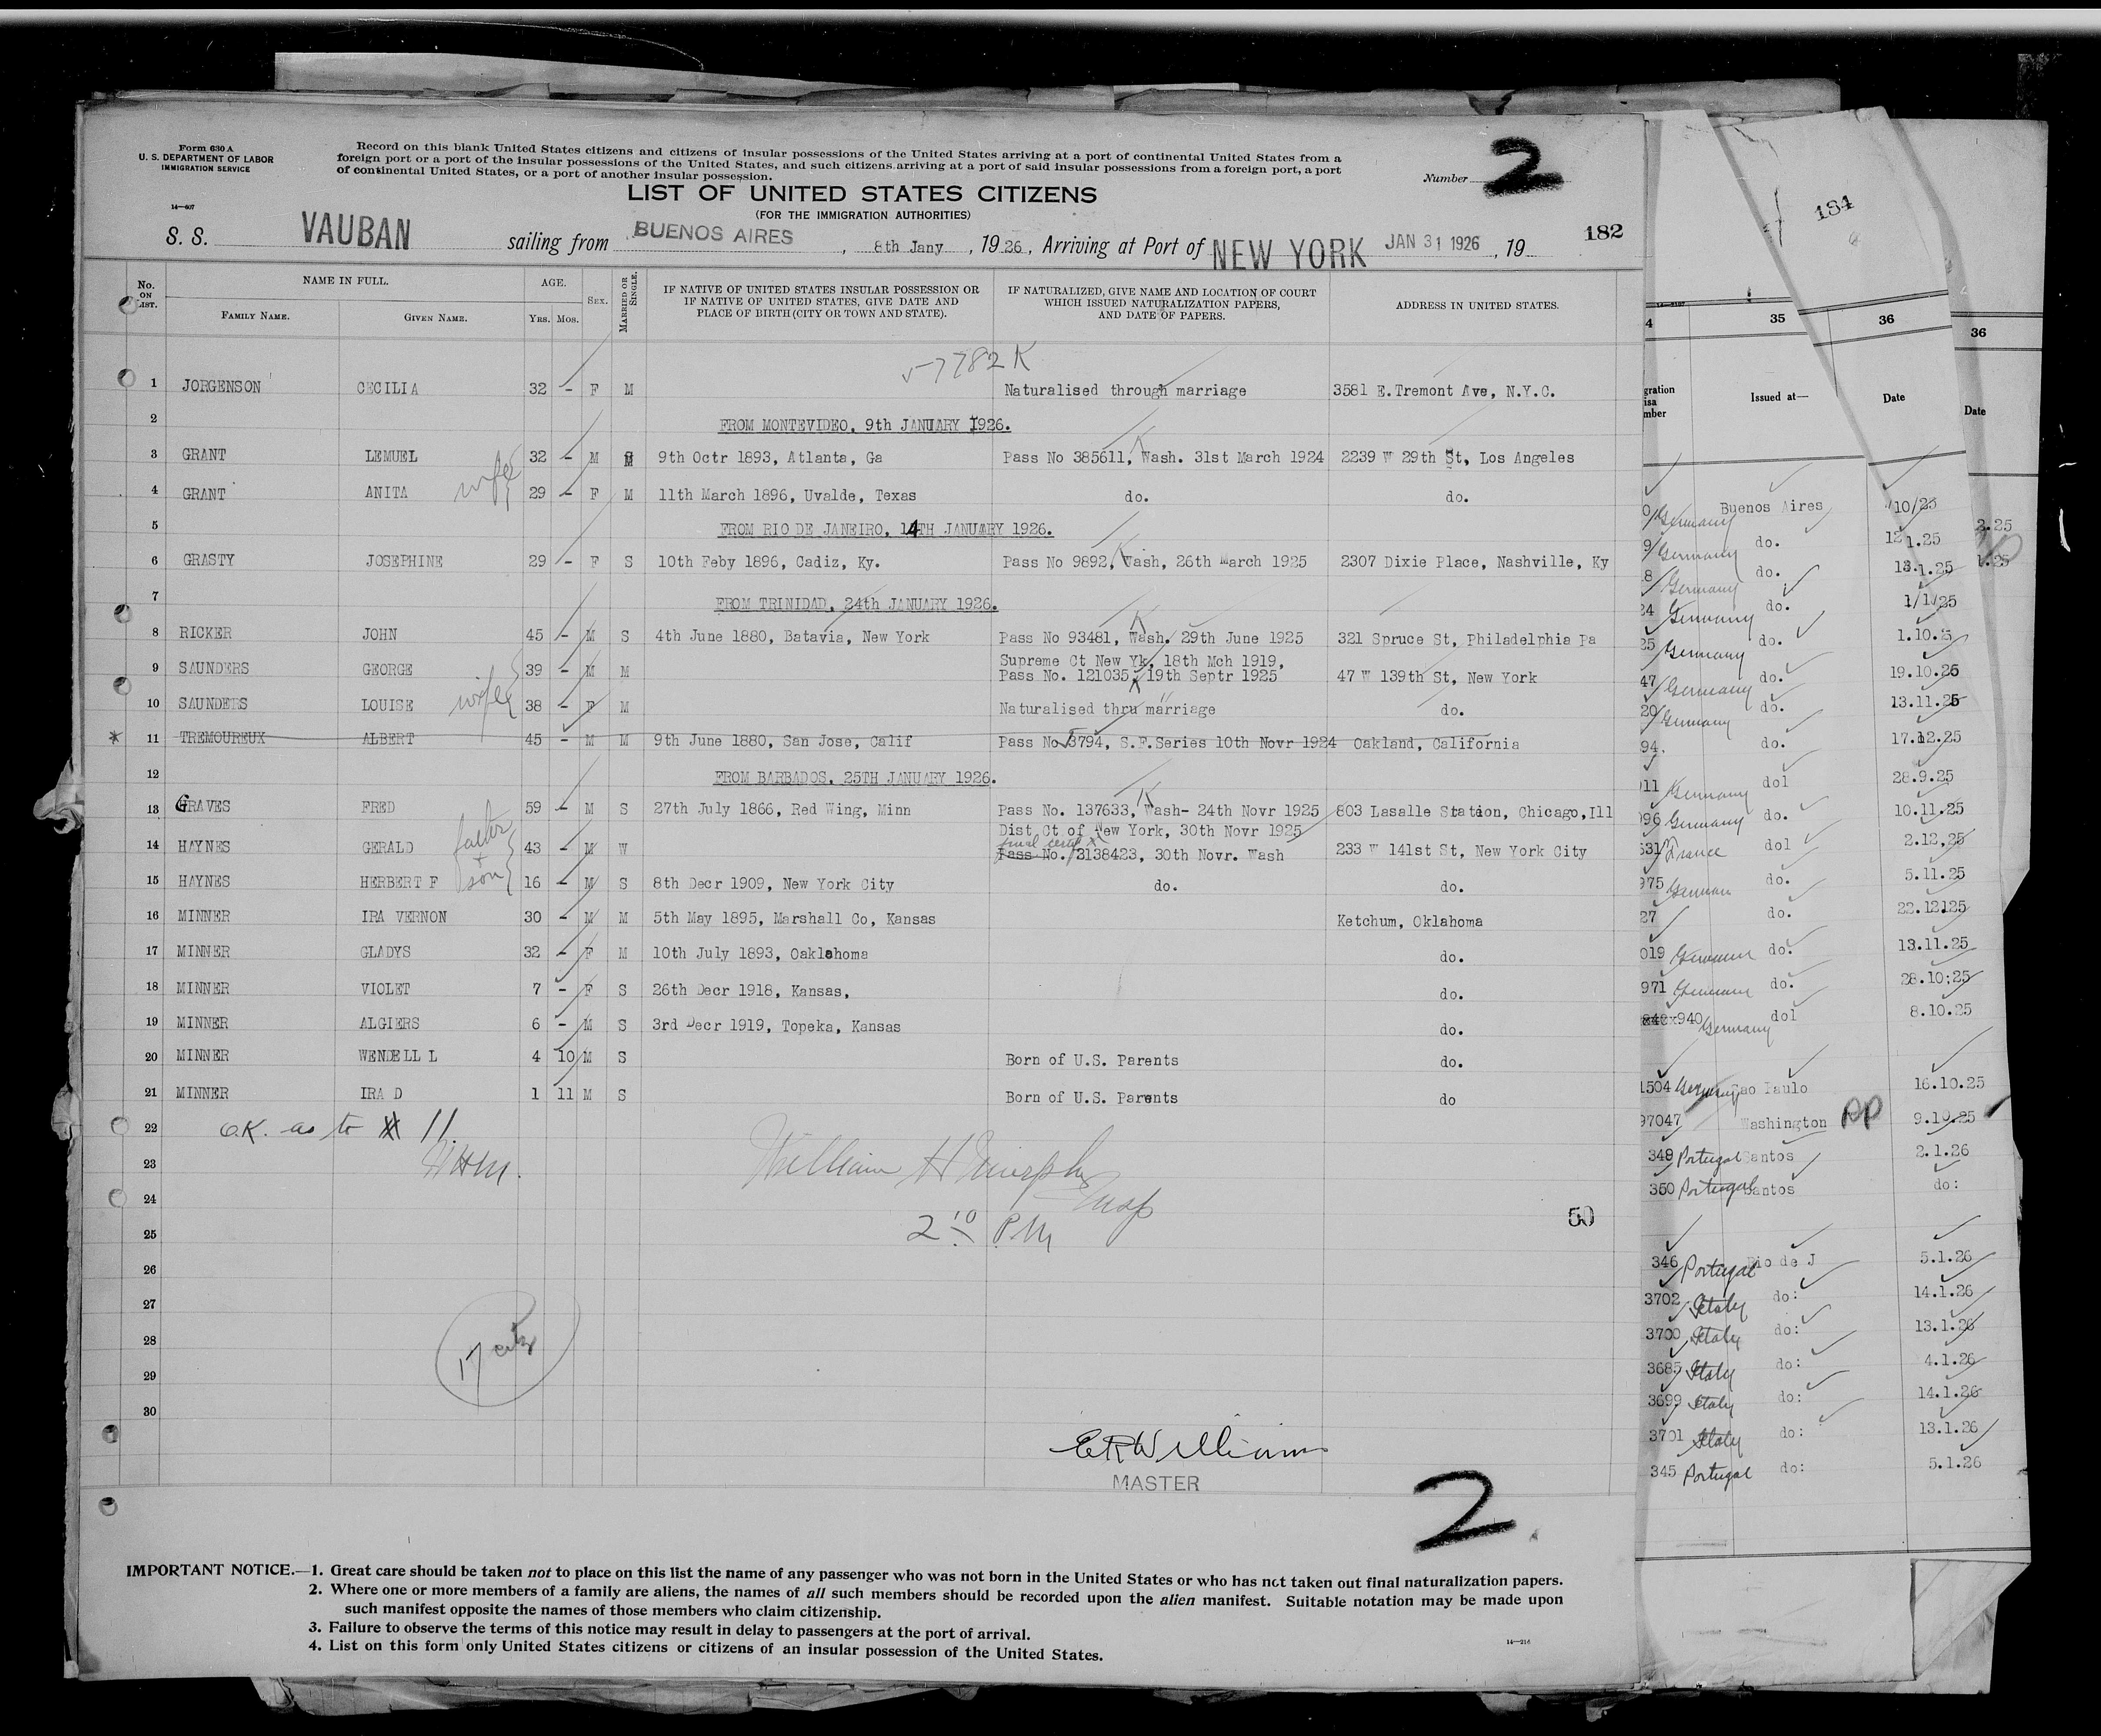 Form 630 A
U. S. DEPARTMENT OF LABOR
IMMIGRATION SERVICE
14—607
Record on this blank United States citizens and citizens of insular possessions of the United States arriving at a port of continental United States from a
foreign port or a port of the insular possessions of the United States, and such citizens arriving at a port of said insular possessions from a foreign port, a port
of continental United States, or a port of another insular possession.
Number 2
LIST OF UNITED STATES CITIZENS
(FOR THE IMMIGRATION AUTHORITIES)
182
S. S. VAUBAN sailing from BUENOS AIRES, 8th Jany, 1926, Arriving at Port of NEW YORK JAN 31 1926, 19
No. ON LIST. NAME IN FULL. FAMILY NAME. GIVEN NAME. AGE. Yrs. Mos. SEX. MARRIED OR SINGLE. IF NATIVE OF UNITED STATES INSULAR POSSESSION OR IF NATIVE OF UNITED STATES, GIVE DATE AND PLACE OF BIRTH (CITY OR TOWN AND STATE). IF NATURALIZED, GIVE NAME AND LOCATION OF COURT WHICH ISSUED NATURALIZATION PAPERS, AND DATE OF PAPERS. ADDRESS IN UNITED STATES.
57782 K
1 JORGENSON CECILIA 32 - F M Naturalised through marriage 3581 E.Tremont Ave, N.Y.C.
2 FROM MONTEVIDEO, 9th JANUARY 1926.
3 GRANT LEMUEL 32 - M M 9th Octr 1893, Atlanta, Ga Pass No 385611, Wash. 31st March 1924 2239 W 29th St, Los Angeles
4 GRANT ANITA wife 29 - F M 11th March 1896, Uvalde, Texas do. do.
5 FROM RIO DE JANEIRO, 14TH JANUARY 1926.
6 GRASTY JOSEPHINE 29 - F S 10th Feby 1896, Cadiz, Ky. Pass No 9892, Wash, 26th March 1925 2307 Dixie Place, Nashville, Ky
7 FROM TRINIDAD, 24th JANUARY 1926.
8 RICKER JOHN 45 - M S 4th June 1880, Batavia, New York Pass No 93481, Wash. 29th June 1925 321 Spruce St, Philadelphia Pa
9 SAUNDERS GEORGE 39 - M M Supreme Ct New Yk, 18th Mch 1919,
Pass No. 121035, 19th Septr 1925 47 W 139th St, New York
10 SAUNDERS LOUISE wife 38 - F M Naturalised thru marriage do.
* 11 TREMOUREUX ALBERT 45 - M M 9th June 1880, San Jose, Calif Pass No 3794, S.F.Series 10th Novr 1924 Oakland, California
12 FROM BARBADOS, 25TH JANUARY 1926.
13 GRAVES FRED 59 - M S 27th July 1866, Red Wing, Minn Pass No. 137633, Wash- 24th Novr 1925 803 Lasalle Station, Chicago,Ill
Dist Ct of New York, 30th Novr 1925
14 HAYNES GERALD father + son 43 - M W Pass No. 2138423, 30th Novr. Wash 233 W 141st St, New York City
15 HAYNES HERBERT F 16 - M S 8th Decr 1909, New York City do. do.
16 MINNER IRA VERNON 30 - M M 5th May 1895, Marshall Co, Kansas Ketchum, Oklahoma
17 MINNER GLADYS 32 - F M 10th July 1893, Oaklahoma do.
18 MINNER VIOLET 7 - F S 26th Decr 1918, Kansas, do.
19 MINNER ALGIERS 6 - M S 3rd Decr 1919, Topeka, Kansas do.
20 MINNER WENDELL L 4 10 M S Born of U.S. Parents do.
21 MINNER IRA D 1 11 M S Born of U.S. Parents do
22 O.K. as to # 11.
23 WHM. William H Murphy
24 Insp
25 2 10 P.M 50
26
27
28 17 citz
29
30
E R Williams
MASTER
2
IMPORTANT NOTICE.—1. Great care should be taken not to place on this list the name of any passenger who was not born in the United States or who has not taken out final naturalization papers.
2. Where one or more members of a family are aliens, the names of all such members should be recorded upon the alien manifest. Suitable notation may be made upon
such manifest opposite the names of those members who claim citizenship.
3. Failure to observe the terms of this notice may result in delay to passengers at the port of arrival.
4. List on this form only United States citizens or citizens of an insular possession of the United States.
184
4 35 36 36
Issued at— Date Date
Germany Buenos Aires 10/25
Germany do. 12 1.25
Germany do. 13.1.25
Germany do. 1/1/25
Germany do. 1.10.
Germany do. 19.10.25
Germany do. 13.11.25
94. do. 17.12.25
Germany dol 28.9.25
Germany do. 10.11.25
France dol 2.12,25
975 German do. 5.11.25
27 do. 22.12125
019 German do. 13.11.25
971 Germany do. 28.10;25
940 Germany dol 8.10.25
1504 Germany Sao Paulo 16.10.25
97047 Washington 9.10.25
349 Portugal Santos 2.1.26
350 Portugal Santos do:
346 Portugal Rio de J 5.1.26
3702 Italy do: 14.1.26
3700 Italy do: 13.1.26
3685 Italy do: 4.1.26
3699 Italy do: 14.1.26
3701 Italy do: 13.1.26
345 Portugal do: 5.1.26